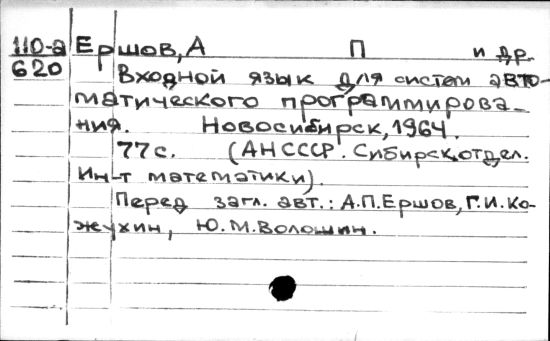 110-а Ершов, А П и др.
620 Входной язык для систем авто-
матического программирова-
ния. Новосибирск, 1964.
77с. (АН СССР. Сибирск. отдел.
Ин-т математики).
Перед загл. авт.: А.П.Ершов, Г.И.Ко-
жухин, Ю.М.Волошин.